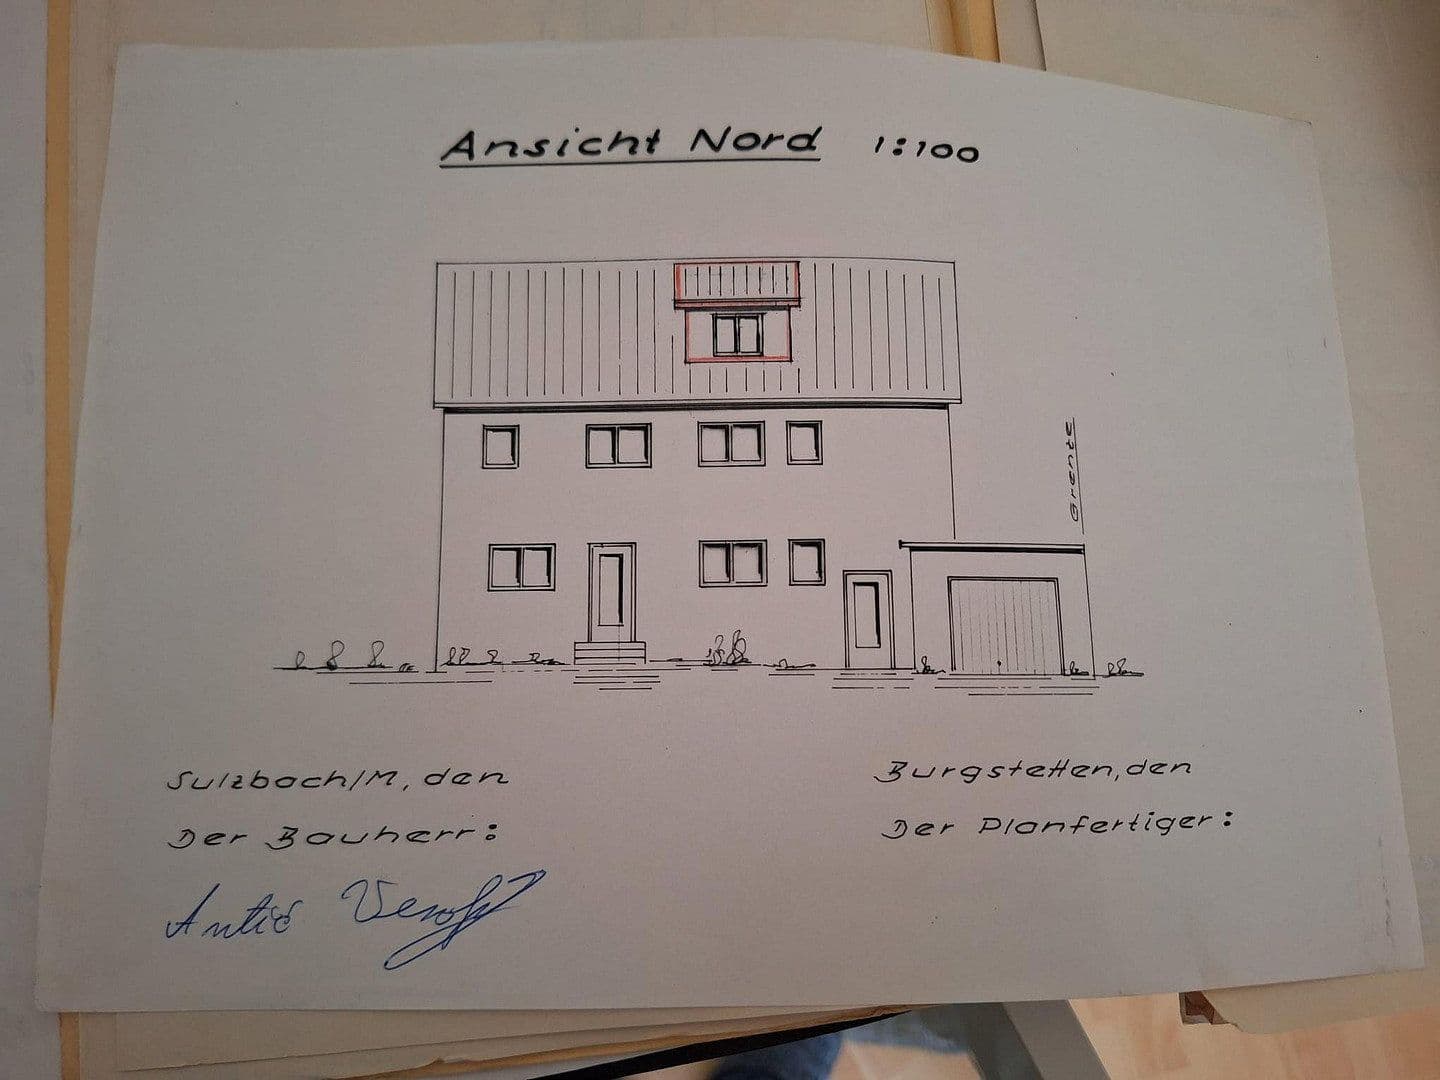 Ansicht Nord 1:100
Grenze
Sulzbach/M, den
Der Bauherr:
Antić
Burgstetten, den
Der Planfertiger: